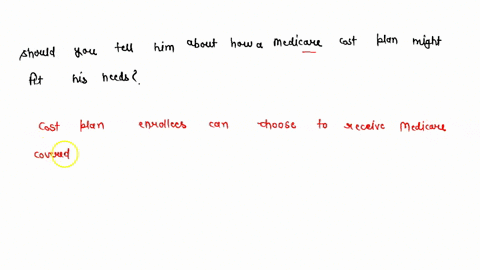 should you tell him about how a Medicare cost plan might
fit his needs?
Cost plan enrollees can choose to receive Medicare
covered